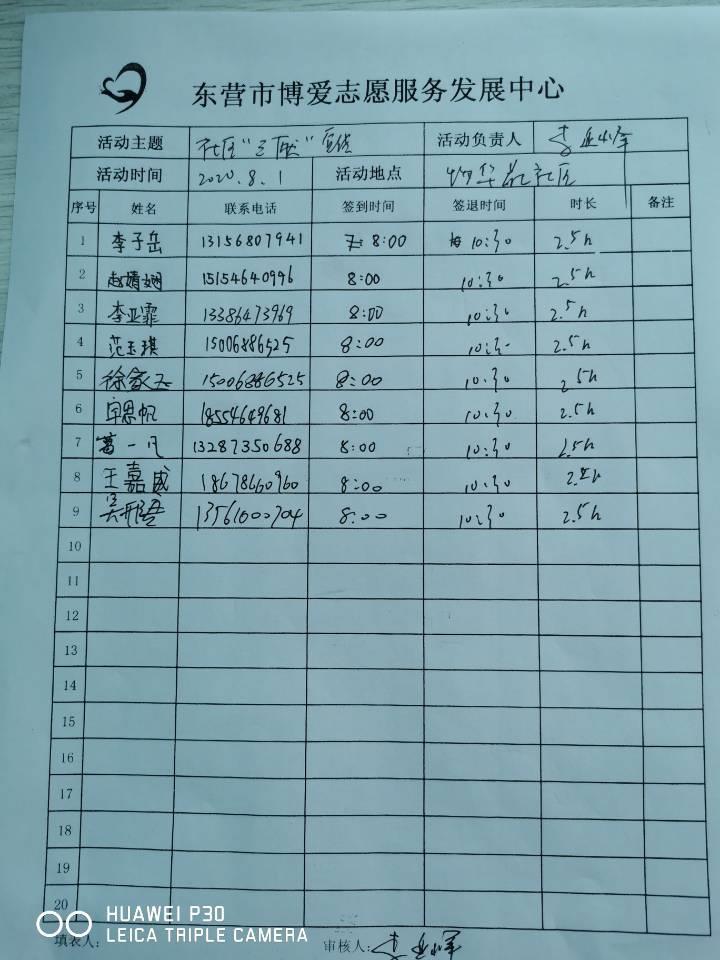 东营市博爱志愿服务发展中心
活动主题 社区"三 " 宣传 活动负责人 李
活动时间 2020.8.1 活动地点 社区
序号 姓名 联系电话 签到时间 签退时间 时长 备注
1 李子岳 13156807941 8:00 10:30 2.5h
2 赵婧娴 15154640996 8:00 10:30 2.5h
3 李亚霏 13386473969 8:00 10:30 2.5h
4 范玉琪 15006886525 8:00 10:30 2.5h
5 徐家玉 15006886525 8:00 10:30 2.5h
6 思帆 18554649681 8:00 10:30 2.5h
7 葛一凡 13287350688 8:00 10:30 2.5h
8 王嘉威 18678660960 8:00 10:30 2.5h
9 吴 13561000704 8:00 10:30 2.5h
10
11
12
13
14
15
16
17
18
19
20
填表人： 审核人： 李
HUAWEI P30
LEICA TRIPLE CAMERA